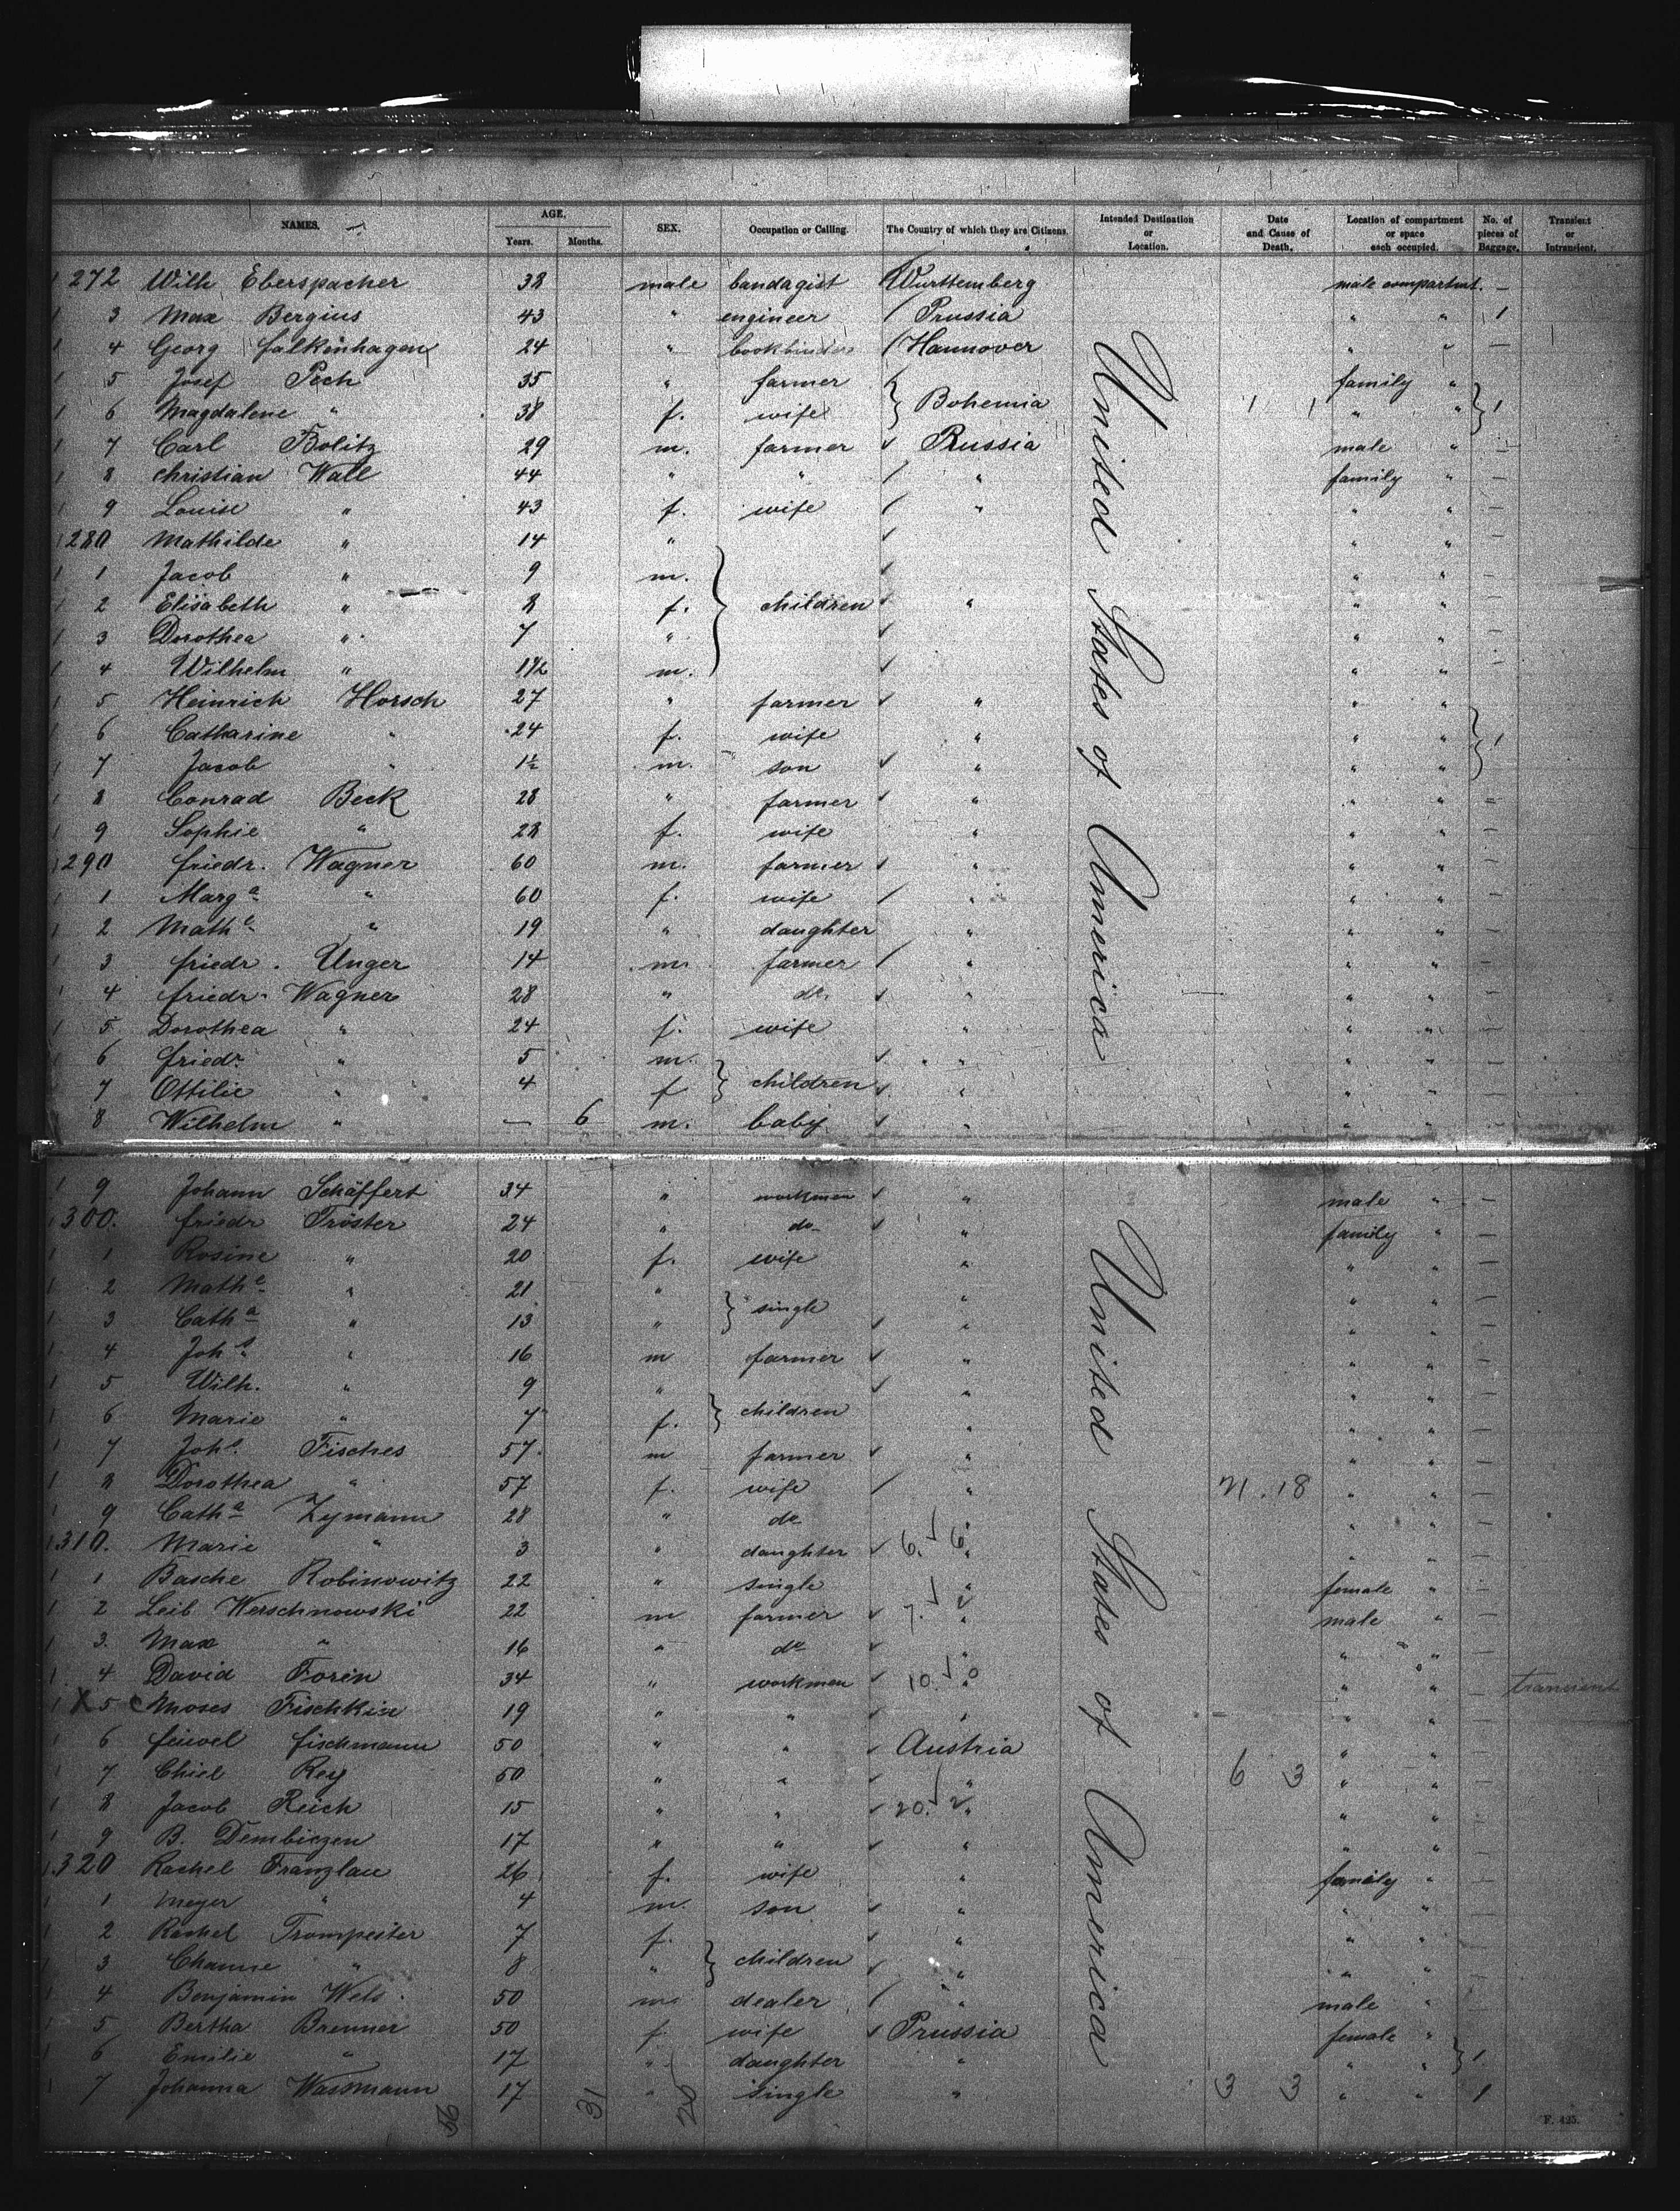 NAMES. AGE. Years. Months. SEX. Occupation or Calling. The Country of which they are Citizens. Intended Destination or Location. Date and Cause of Death. Location of compartment or space each occupied. No. of pieces of Baggage. Transient or Intransient.
1272 Wilh Eberspacher 38 male bandagist Württemberg male compartmt. —
1 3 Max Bergius 43 " engineer Prussia " " 1
1 4 Georg Falkenhagen 24 " bookbinder Hannover " " —
1 5 Josef Pech 35 " farmer family "
1 6 Magdalene " 38 f. wife } Bohemia " " } 1
1 7 Carl Bolitz 29 m. farmer Russia male " —
1 8 Christian Wall 44 " " " family " —
1 9 Louise " 43 f. wife " " " —
1280 Mathilde " 14 " " " —
1 1 Jacob " 9 m. " " —
1 2 Elisabeth " 8 f. } children " " " —
1 3 Dorothea " 7 " " " —
1 4 Wilhelm " 1 1/2 m. " " —
1 5 Heinrich Horsch 27 " farmer " " "
1 6 Catharine " 24 f. wife " " " } 1
1 7 Jacob " 1½ m. son " " "
1 8 Conrad Beck 28 " farmer " " " —
1 9 Sophie " 28 f. wife " " " —
1290 Friedr. Wagner 60 m. farmer " " " —
1 1 Marg.a " 60 f. wife " " " —
1 2 Math.e " 19 " daughter " " " —
1 3 Friedr. Unger 14 m. farmer " " " —
1 4 Friedr. Wagner 28 " do. " " " —
1 5 Dorothea " 24 f. wife " " " —
1 6 Friedr. " 5 m. " " " —
1 7 Ottilie " 4 f } children " " " —
8 Wilhelm " — 6 m. baby " " " —
United States of America
1 9 Johann Schäffert 34 " workman " male " —
1300. Friedr Tröster 24 " do " family " —
1 1 Rosine " 20 f. wife " " " —
1 2 Math.e " 21 " " " " —
1 3 Cath.a " 13 " } single " " " —
1 4 Joh.s " 16 m farmer " " " —
1 5 Wilh. " 9 " " " " —
1 6 Marie " 7 f. } children " " " —
1 7 Joh.s Fisches 57 m farmer " " " —
1 8 Dorothea " 57 f. wife " 21. 18 " " —
1 9 Cath.a Zymann 28 " do " " " —
1310. Marie " 3 " daughter 6. 6 " " " —
1 1 Basche Robinowitz 22 " single " female " —
1 2 Leib Werschnowski 22 m farmer 7. " male " —
1 3. Max " 16 " do " " " —
1 4 David Forin 34 " workman 10. 0 " " " — transient
1 X 5 Moses Fischkin 19 " " " " " —
1 6 Feiwel Fischmann 50 " " Austria " " —
1 7 Chiel Rey 50 " " " 6 3 " " —
1 8 Jacob Reich 15 " " 20. 2 " " " —
1 9 B. Dembiczen 17 " " " " " —
1320 Rachel Franzlau 26 f. wife " family " —
1 1 Meyer " 4 m. son " " " —
1 2 Rachel Trompeiter 7 f. " " " —
1 3 Channe " 8 " } children " " " —
1 4 Benjamin Wels 50 m. dealer " male " —
1 5 Bertha Brenner 50 f. wife Prussia female "
1 6 Emilie " 17 " daughter " " " } 1
1 7 Johanna Wassmann 17 " single " 3 3 " " 1
United States of America
F. 425.